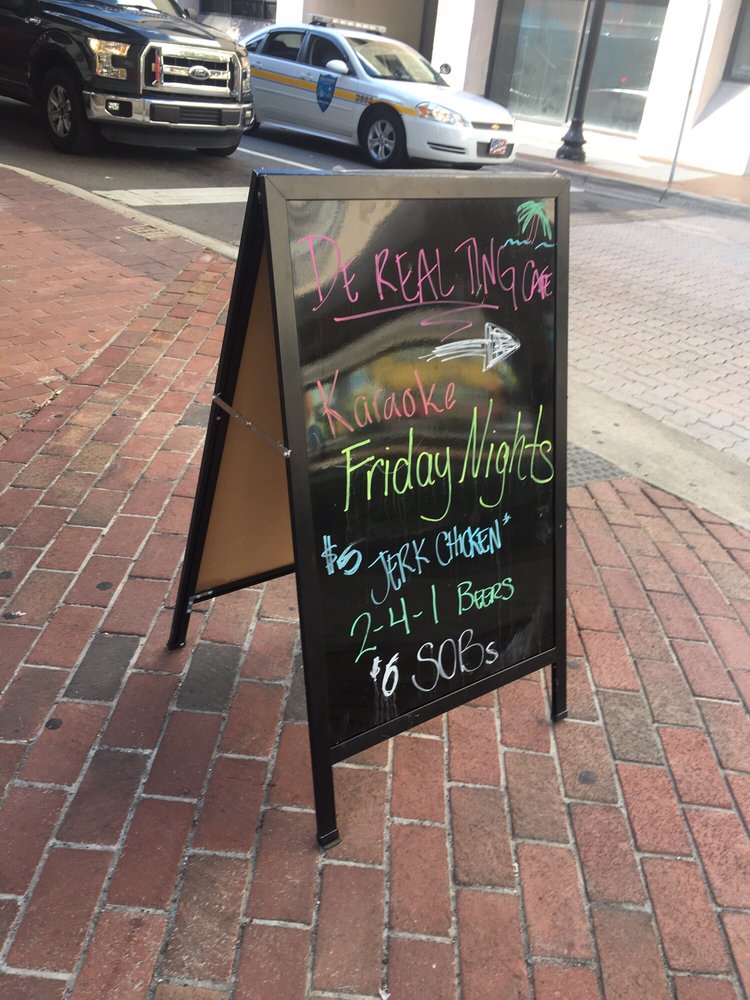 De REAL TING CAFE
Karaoke
Friday Nights
$5 JERK CHICKEN*
2-4-1 BEERS
$6 SOBs
Ford